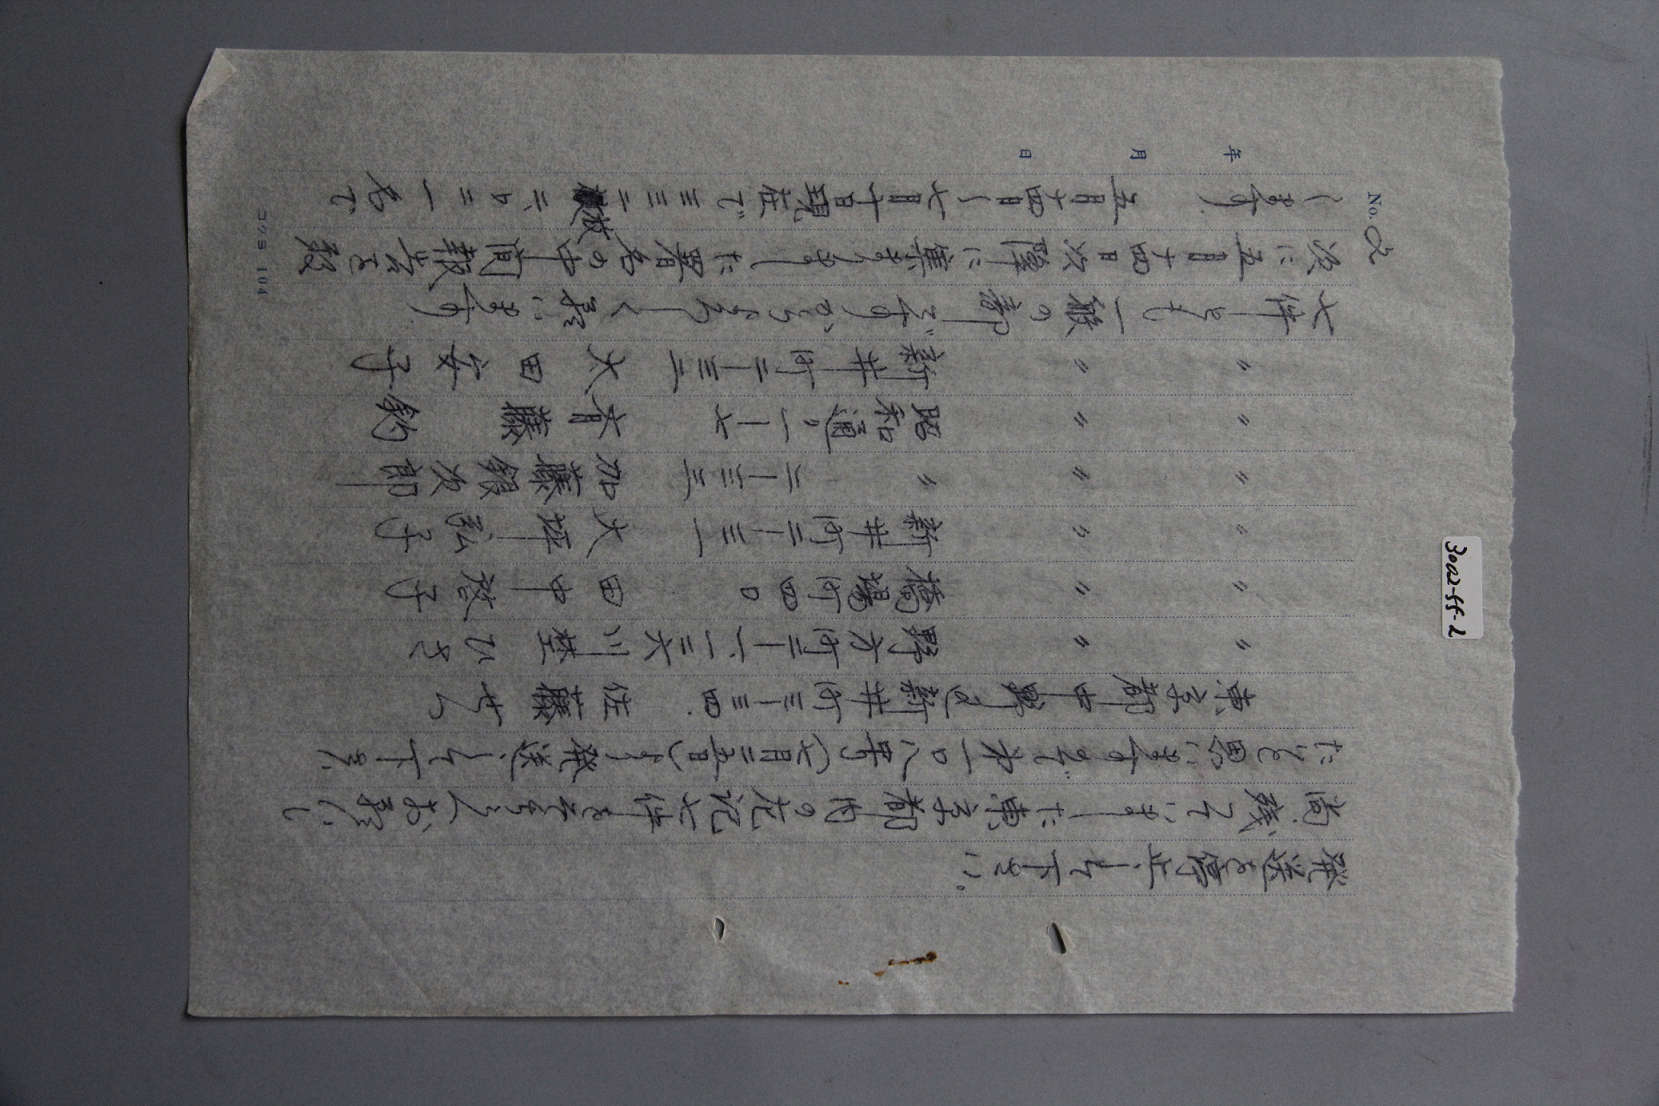 No. 2
年 月 日
発送を停止して下さい。
尚、残っていました東京都内の左記七件をそちらへお願いし
たいと思いますので才一〇八号(七月二五日)より発送して下さい
東京都中野区新井町三ー三四. 佐藤せん
〃 〃 野方町二ー 川 ひさ
〃 〃 橋場町四〇 田中啓子
〃 〃 新井町二ー三一 大 弘子
〃 〃 〃 二ー三三 加藤銀次郎
〃 〃 昭和通り一ー七 斉藤
〃 〃 新井町二ー三二 大田安子
七件とも一般の部ですからよろしく願います
次に五月十四日 に集まりました署名の中間報告を致
します. 五月十四日〜七月十日現在で三三二枚 六〇三一名で
コクヨ 104
3002-55-2